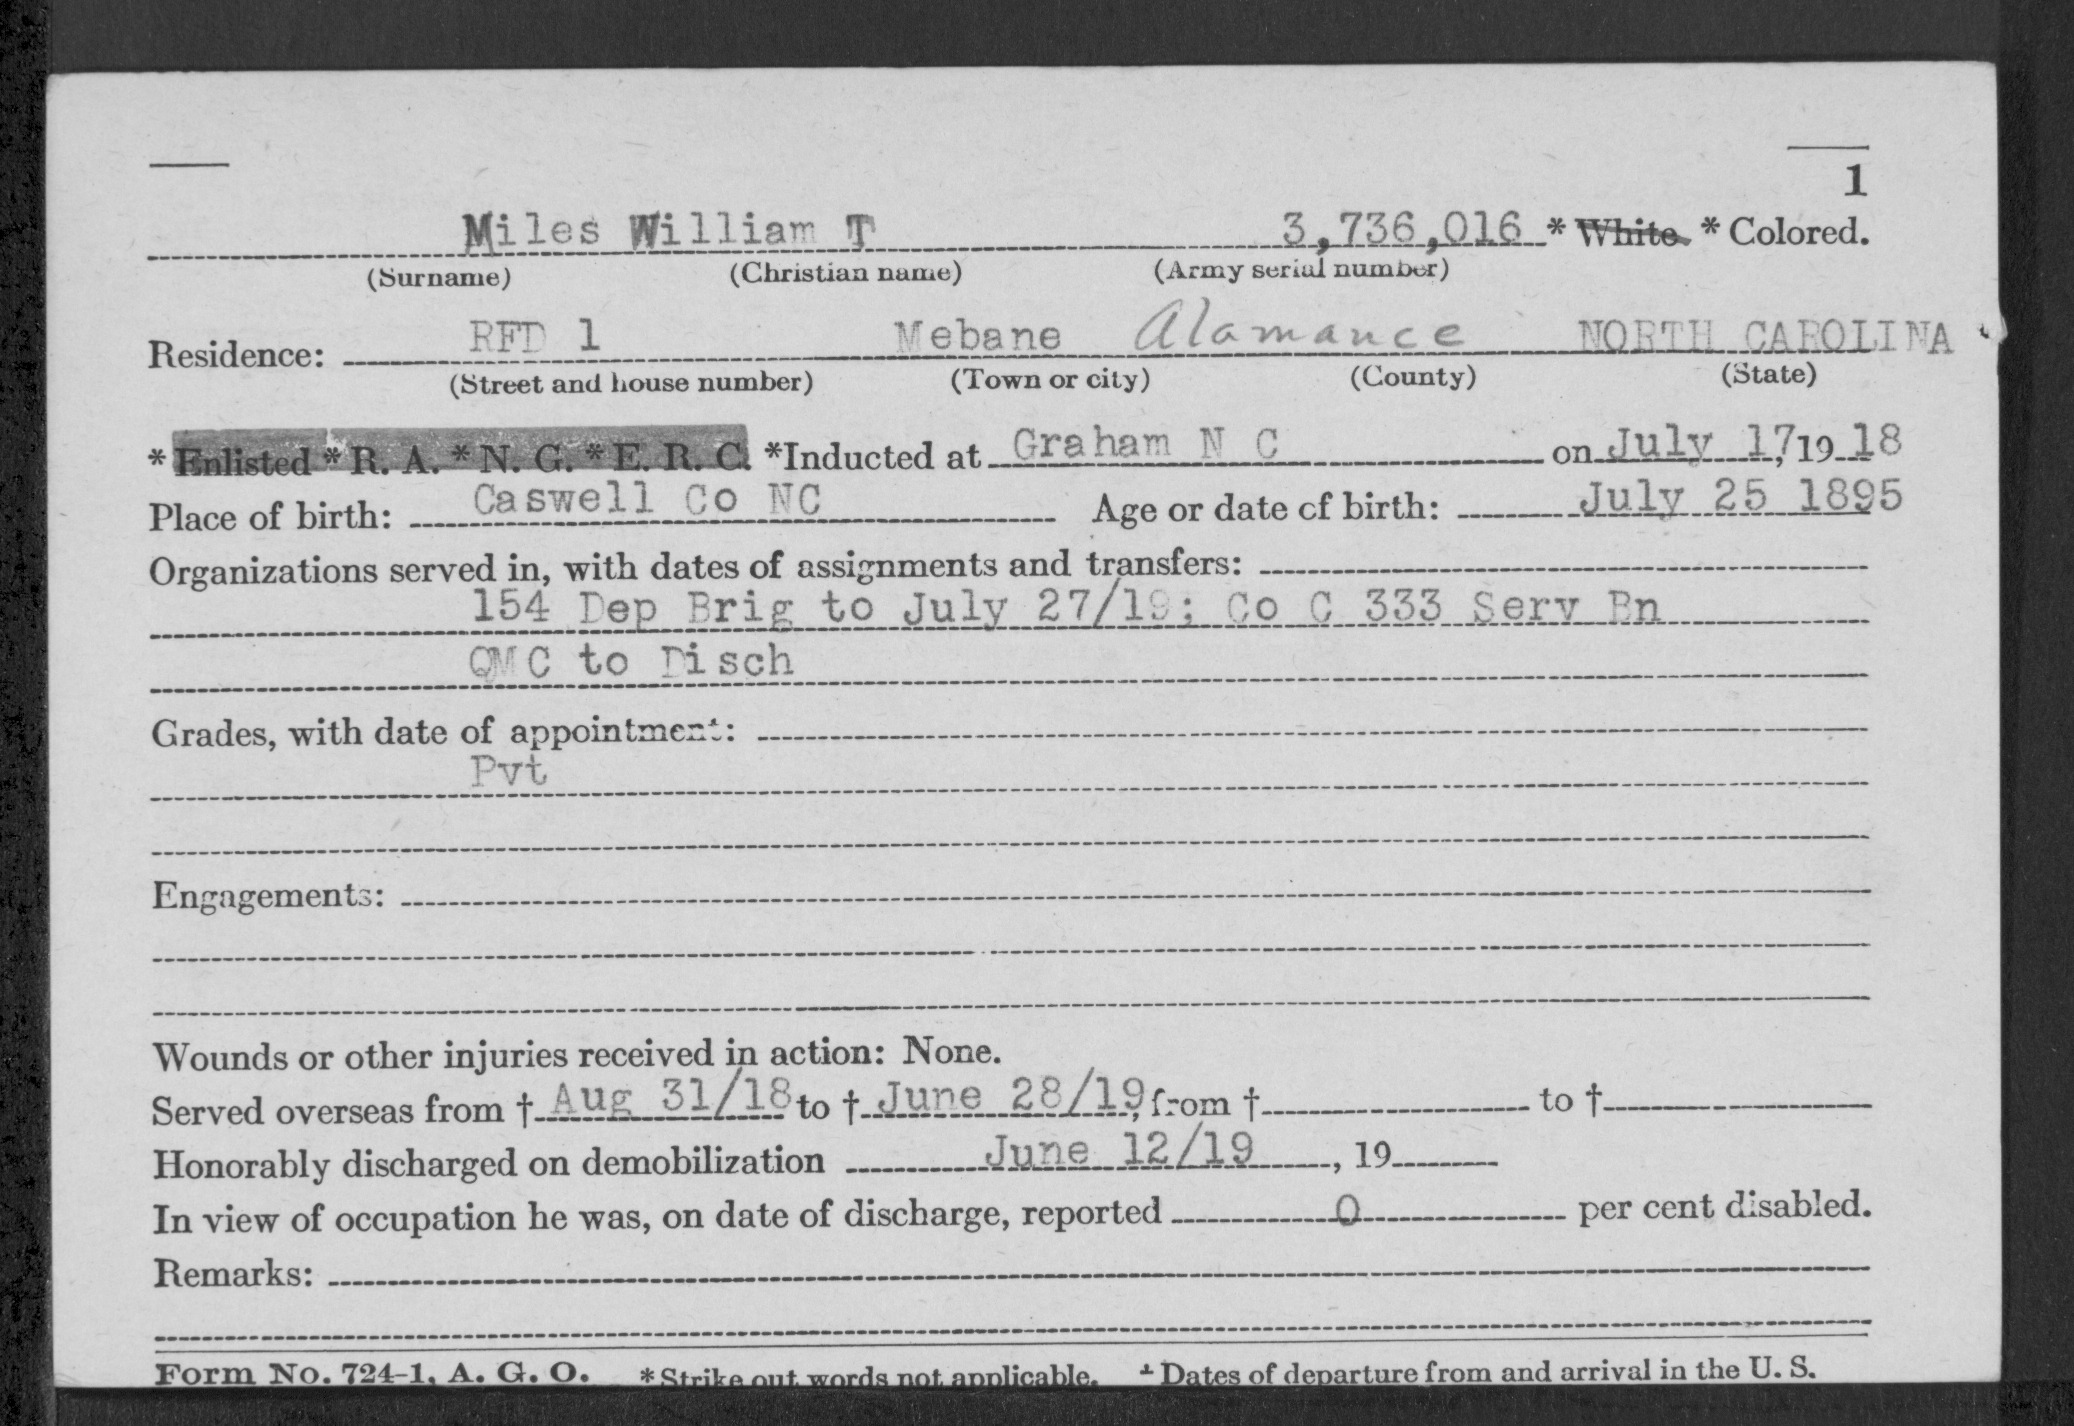 1
Miles William T 3,736,016 * White * Colored.
(Surname) (Christian name) (Army serial number)
Residence: RFD 1 Mebane Alamance NORTH CAROLINA
(Street and house number) (Town or city) (County) (State)
* Enlisted * R. A. * N. G. * E. R. C. *Inducted at Graham N C on July 17, 19 18
Place of birth: Caswell Co NC Age or date of birth: July 25 1895
Organizations served in, with dates of assignments and transfers:
154 Dep Brig to July 27/19; Co C 333 Serv Bn
QMC to Disch
Grades, with date of appointment:
Pvt
Engagements:
Wounds or other injuries received in action: None.
Served overseas from † Aug 31/18 to † June 28/19, from † to †
Honorably discharged on demobilization June 12/19, 19
In view of occupation he was, on date of discharge, reported 0 per cent disabled.
Remarks:
Form No. 724-1, A. G. O. * Strike out words not applicable. † Dates of departure from and arrival in the U. S.